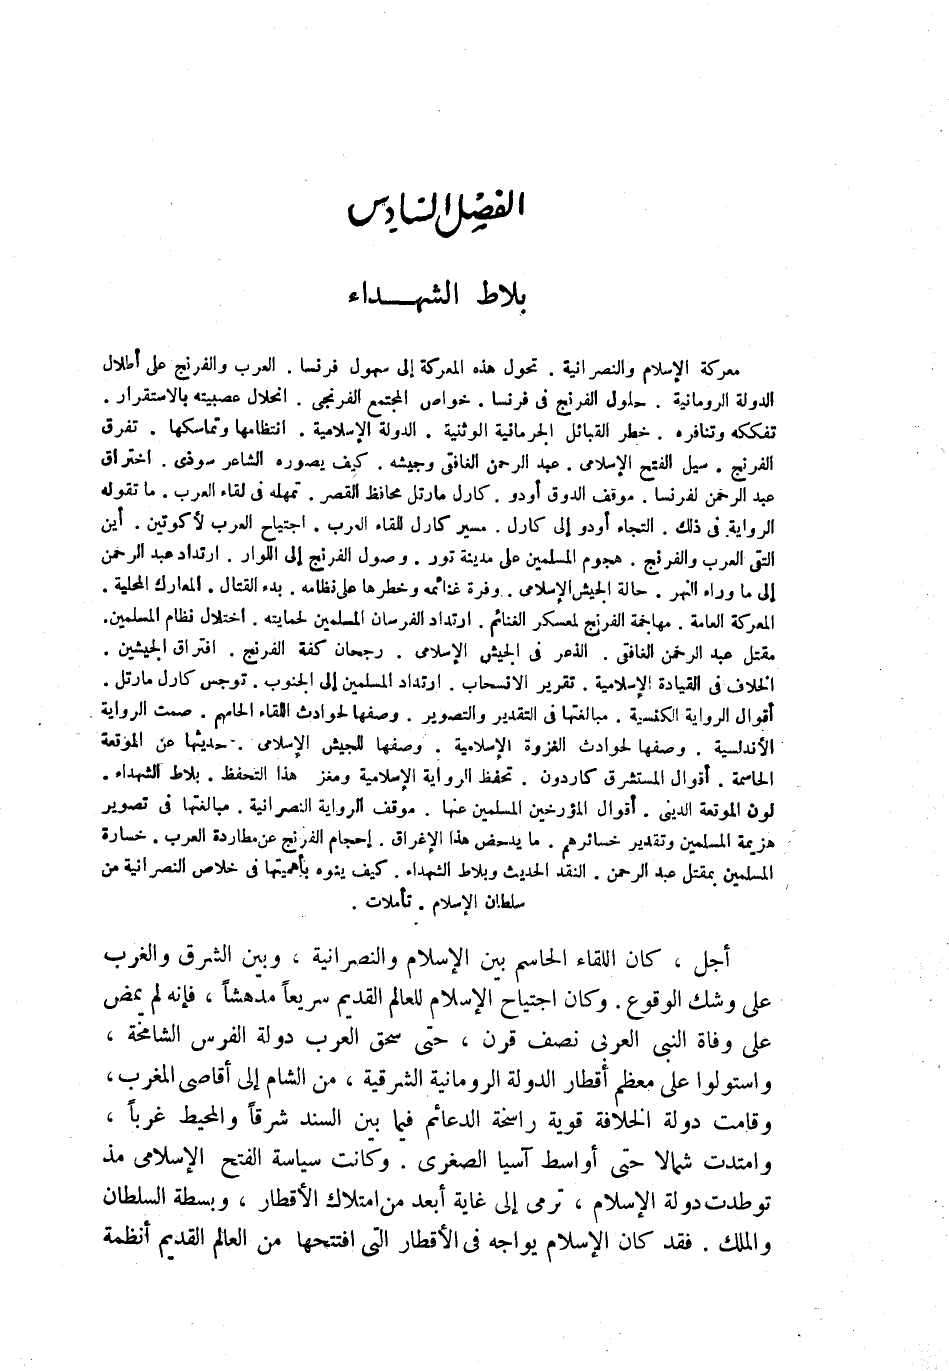 الفصل السادس
بلاط الشهداء
معركة الإسلام والنصرانية . تحول هذه المعركة إلى سهول فرنسا . العرب والفرنج على أطلال
الدولة الرومانية . حلول الفرنج فى فرنسا . خواص المجتمع الفرنجى . انحلال عصبيته بالاستقرار .
تفككه وتنافره . خطر القبائل الجرمانية الوثنية . الدولة الإسلامية . انتظامها وتماسكها . تفرق
الفرنج . سيل الفتح الإسلامى . عبد الرحمن الغافقى وجيشه . كيف يصوره الشاعر سوذى . اختراق
عبد الرحمن لفرنسا . موقف الدوق أودو . كارل مارتل محافظ القصر . تمهله فى لقاء العرب . ما تقوله
الرواية فى ذلك . التجاء أودو إلى كارل . مسير كارل للقاء العرب . اجتياح العرب لأكوتين . أين
التقى العرب والفرنج . هجوم المسلمين على مدينة تور . وصول الفرنج إلى اللوار . ارتداد عبد الرحمن
إلى ما وراء النهر . حالة الجيش الإسلامى . وفرة غنائمه وخطرها على نظامه . بدء القتال . المعارك المحلية .
المعركة العامة . مهاجمة الفرنج لمعسكر الغنائم . ارتداد الفرسان المسلمين لحمايته . اختلال نظام المسلمين.
مقتل عبد الرحمن الغافقى . الذعر فى الجيش الإسلامى . رجحان كفة الفرنج . افتراق الجيشين .
الخلاف فى القيادة الإسلامية . تقرير الانسحاب . ارتداد المسلمين إلى الجنوب . توجس كارل مارتل .
أقوال الرواية الكنسية . مبالغتها فى التقدير والتصوير . وصفها لحوادث اللقاء الحاسم . صمت الرواية
الأندلسية . وصفها لحوادث الغزوة الإسلامية . وصفها للجيش الإسلامى . حديثها عن الموقعة
الحاسمة . أقوال المستشرق كاردون . تحفظ الرواية الإسلامية ومغز هذا التحفظ . بلاط الشهداء .
لون الموقعة الدينى . أقوال المؤرخين المسلمين عنها . موقف الرواية النصرانية . مبالغتها فى تصوير
هزيمة المسلمين وتقدير خسائرهم . ما يدحض هذا الإغراق . إحجام الفرنج عن مطاردة العرب . خسارة
المسلمين بمقتل عبد الرحمن . النقد الحديث وبلاط الشهداء . كيف ينوه بأهميتها فى خلاص النصرانية من
سلطان الإسلام . تأملات .
أجل ، كان اللقاء الحاسم بين الإسلام والنصرانية ، وبين الشرق والغرب
على وشك الوقوع . وكان اجتياح الإسلام للعالم القديم سريعاً مدهشاً ، فإنه لم يمض
على وفاة النبى العربى نصف قرن ، حتى سحق العرب دولة الفرس الشامخة ،
واستولوا على معظم أقطار الدولة الرومانية الشرقية ، من الشام إلى أقاصى المغرب ،
وقامت دولة الخلافة قوية راسخة الدعائم فيما بين السند شرقاً والمحيط غرباً ،
وامتدت شمالا حتى أواسط آسيا الصغرى . وكانت سياسة الفتح الإسلامى مذ
توطدت دولة الإسلام ، ترمى إلى غاية أبعد من امتلاك الأقطار ، وبسطة السلطان
والملك . فقد كان الإسلام يواجه فى الأقطار التى افتتحها من العالم القديم أنظمة